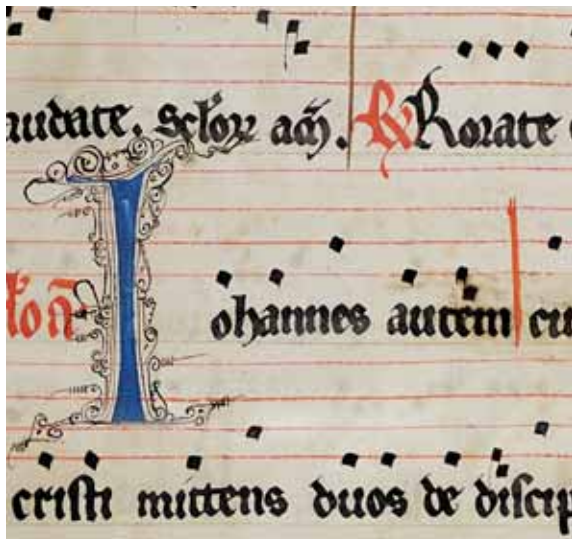 audate. sclorꝝ am̄. ℟ Rorate
Iohannes autem cu
cristi mittens duos de discip